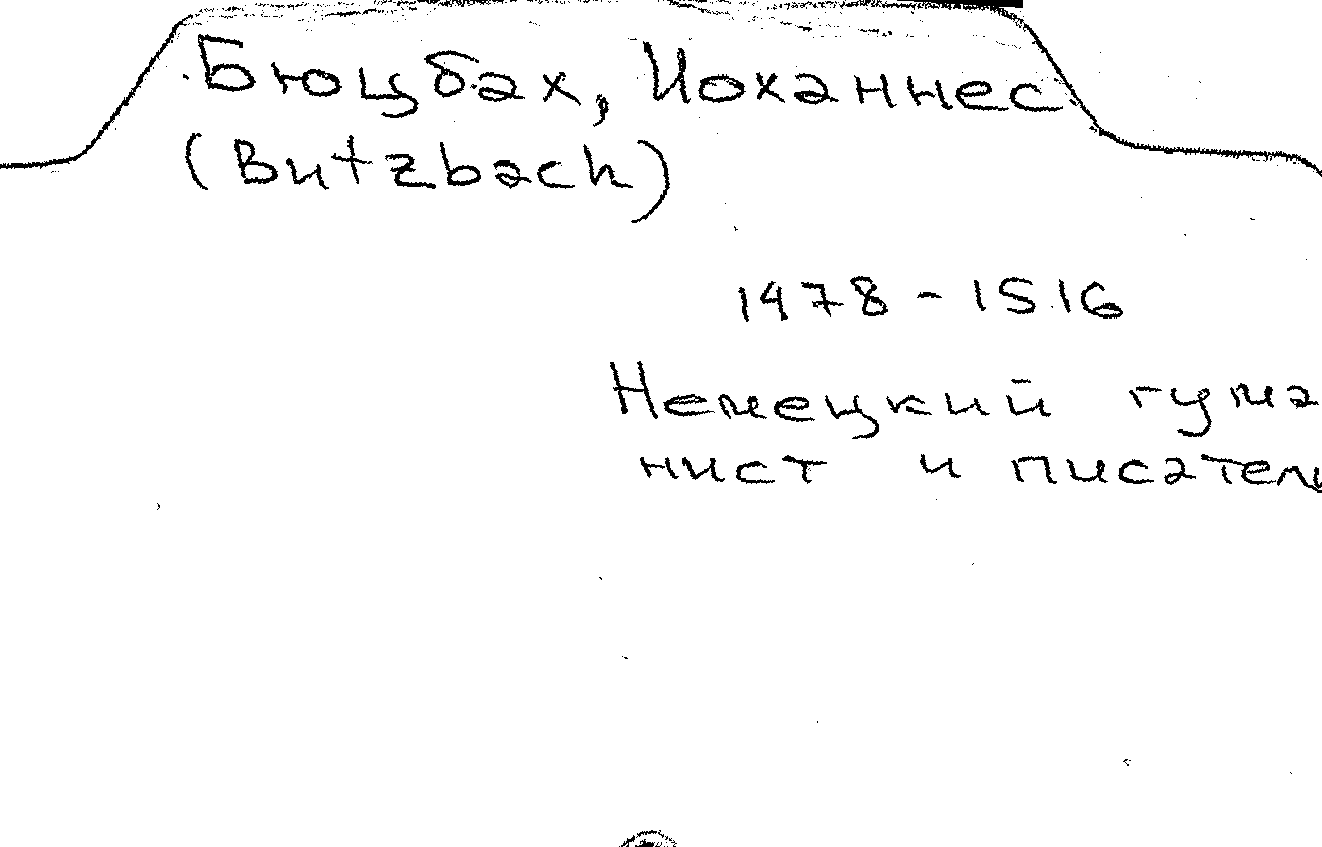 Бюцбах, Иоханнес
(Butzbach)
1478 - 1516
Немецкий гума
нист и писатель